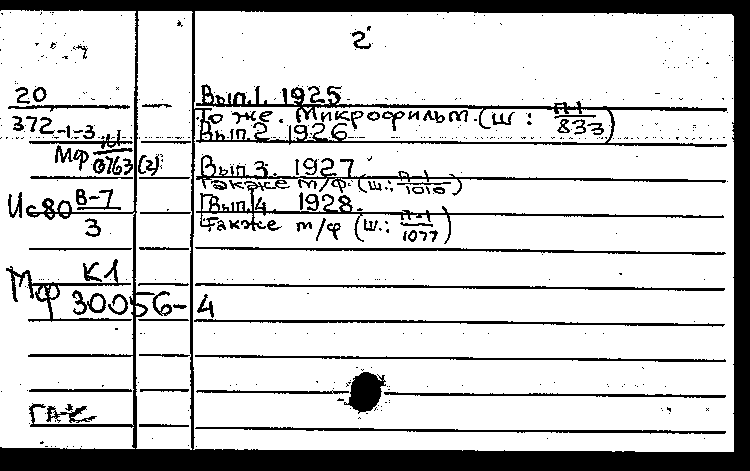 2
20
372-1-3
Мф 0763(2)
Ис80 В-7
3
Мф К1
30056-4
Вып.1. 1925
То же. Микрофильм. (ш: П-1
833)
Вып.2 1926
Вып.3. 1927
Также м/ф (ш.: П-1
1010)
Вып.4. 1928.
Также м/ф (ш.: П-1
1077)